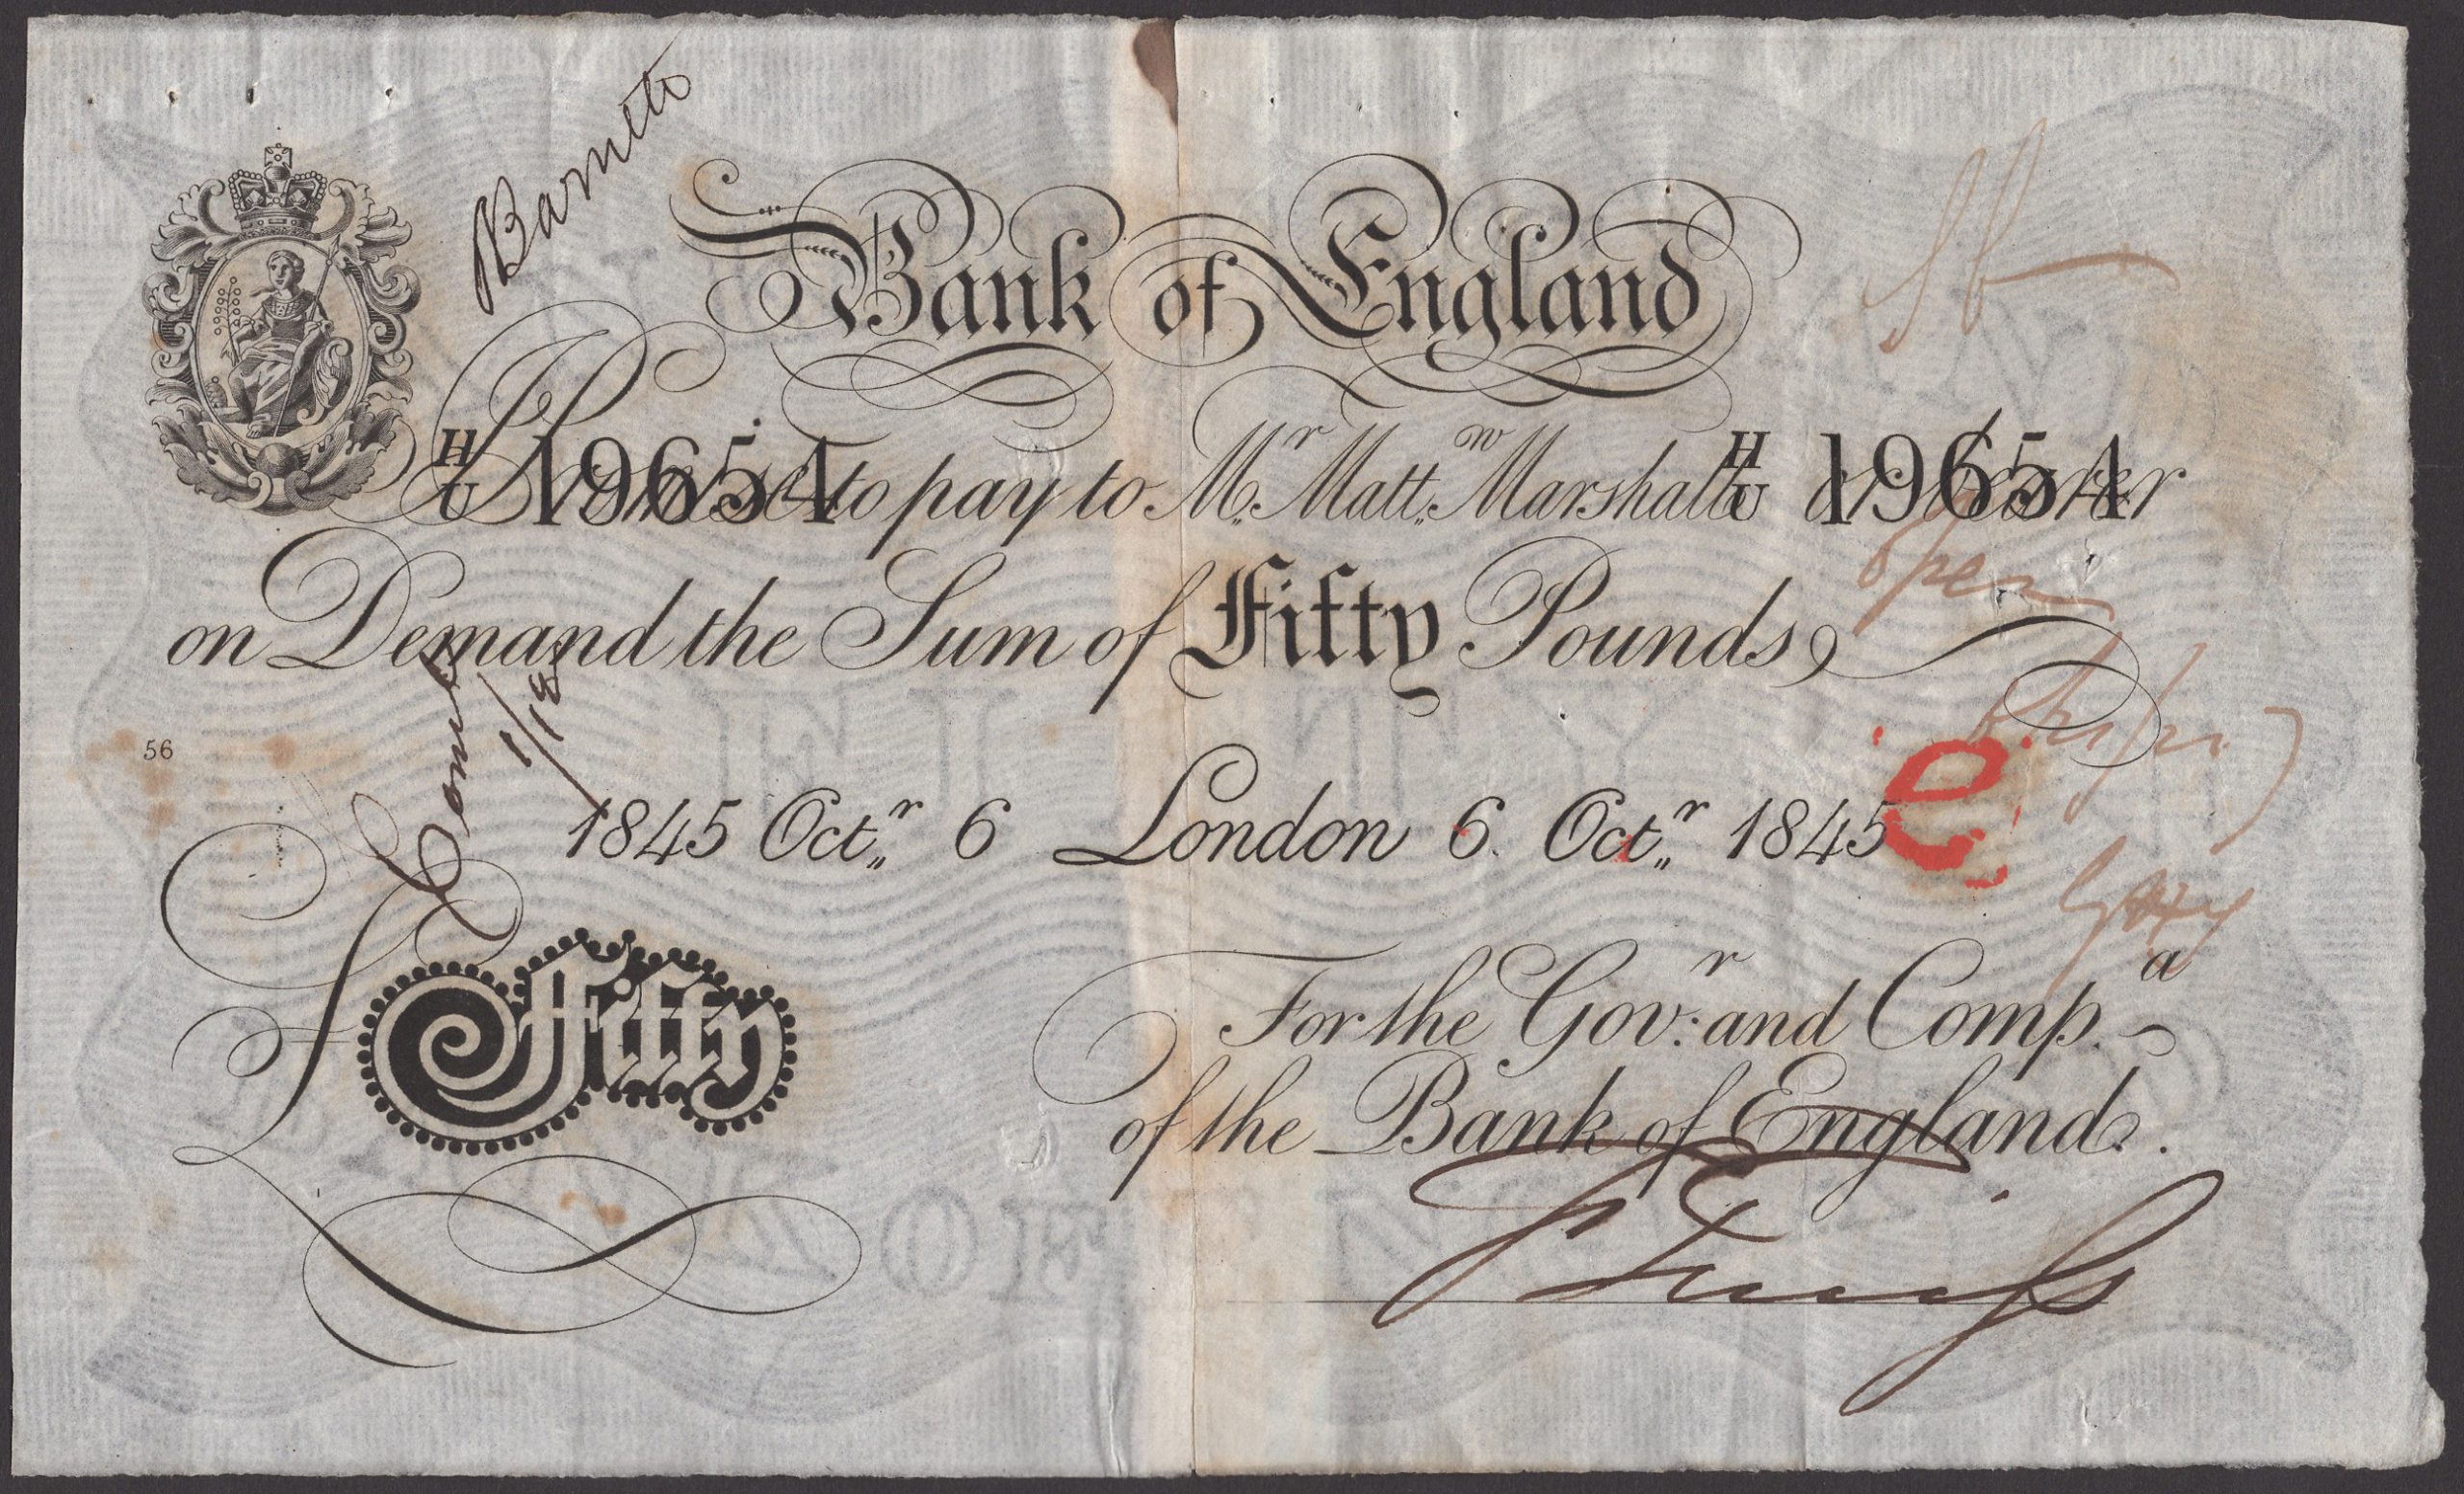 Barnetts
Bank of England
H
U 19654 H
U 19654
I Promise to pay to Mr. Mattw. Marshall or bearer
on Demand the Sum of Fifty Pounds
56
1845 Octr. 6 London 6 Octr. 1845
e
Fifty
For the Govr: and Compa.
of the Bank of England.
FIFTY